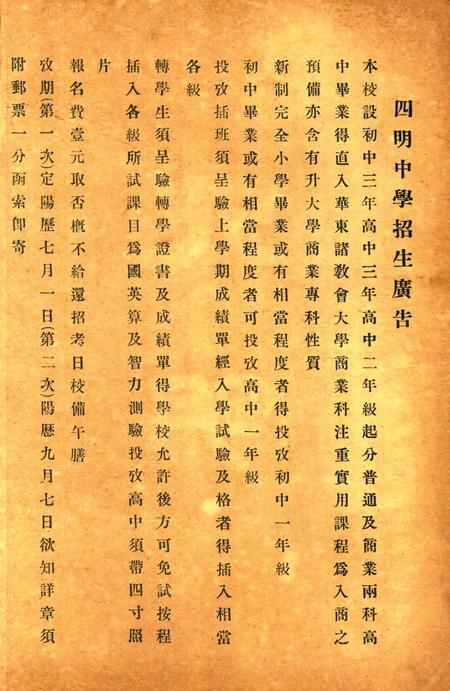 四明中學招生廣告
本校設初中三年高中三年高中二年級起分普通及商業兩科高
中畢業得直入華東諸敎會大學商業科注重實用課程爲入商之
預備亦含有升大學商業專科性質
新制完全小學畢業或有相當程度者得投攷初中一年級
初中畢業或有相當程度者可投攷高中一年級
投攷插班須呈驗上學期成績單經入學試驗及格者得插入相當
各級
轉學生須呈驗轉學證書及成績單得學校允許後方可免試按程
插入各級所試課目爲國英算及智力測驗投攷高中須帶四寸照
片
報名費壹元取否概不給還招考日校備午膳
攷期(第一次)定陽歷七月一日(第二次)陽歷九月七日欲知詳章須
附郵票一分函索卽寄